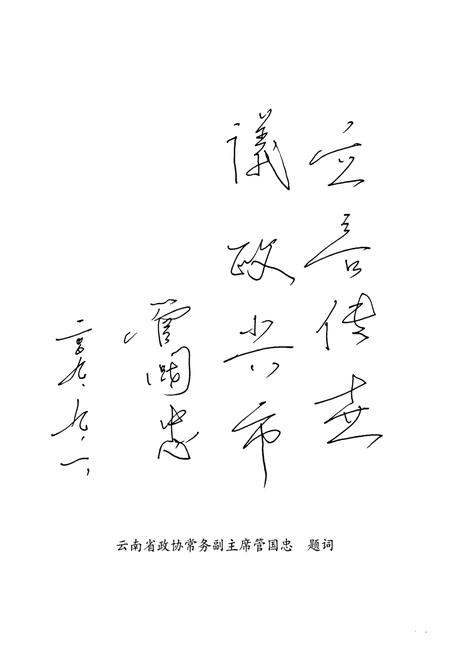 立言传世
議政兴市
管國忠
二〇〇九.九.一.
云南省政协常务副主席管国忠 题词